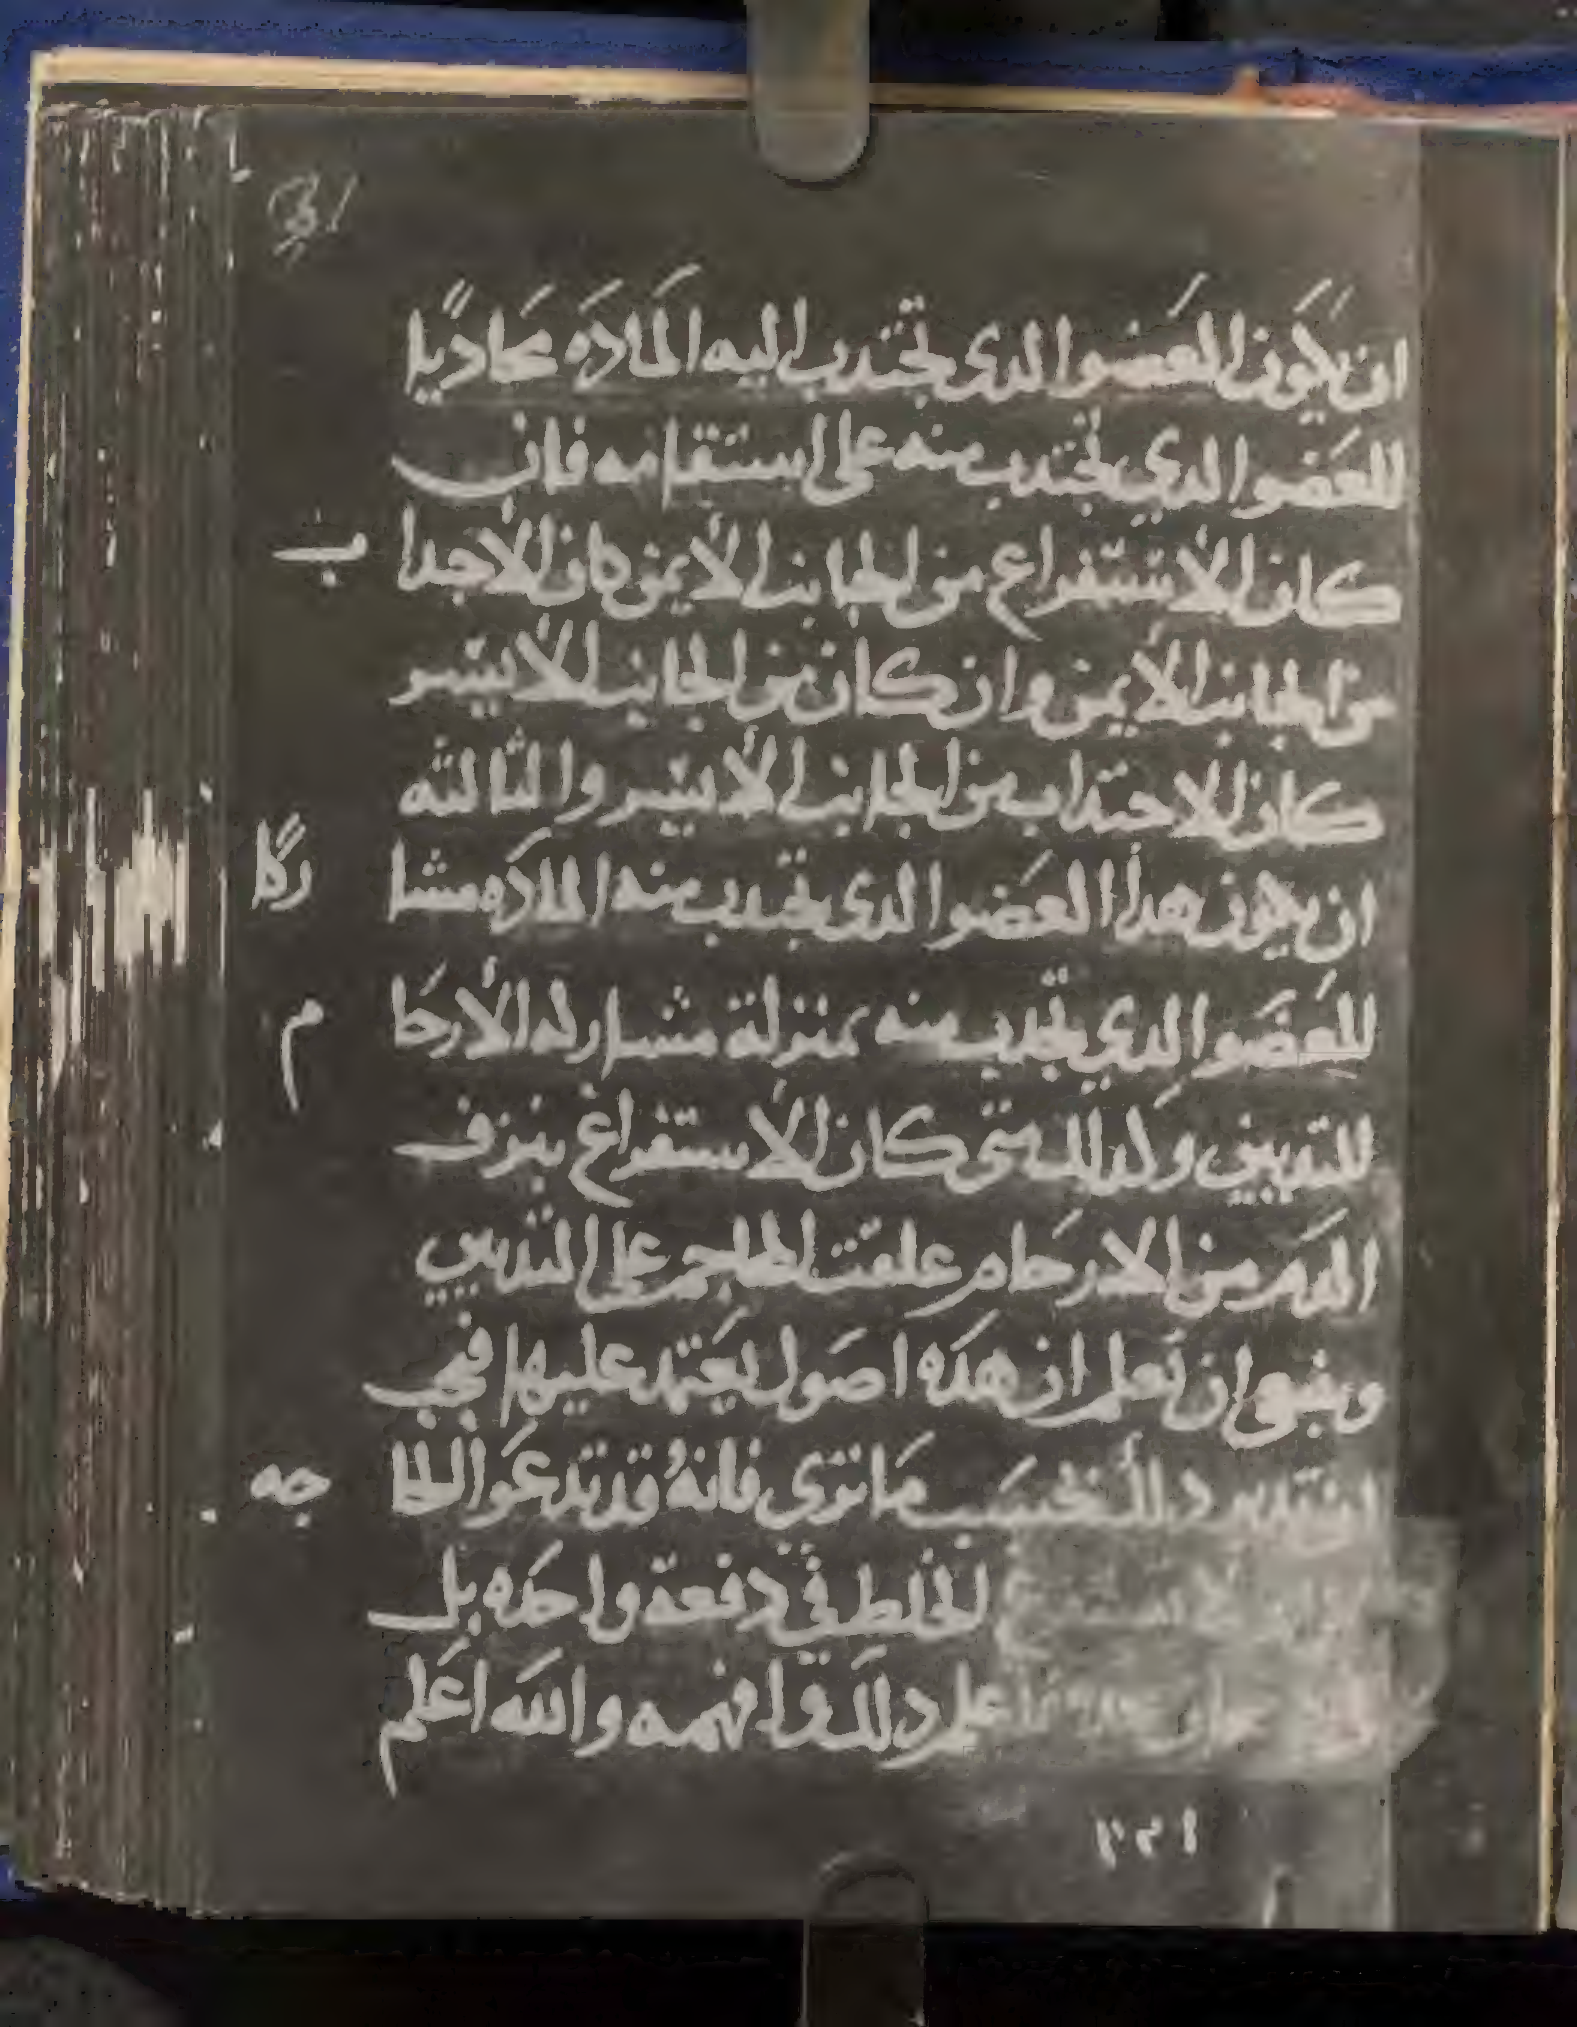 ان يكون العضو الدى تجتدب اليه المادَه محاديًا
للعضو الدي تجتدب منه على استقامه فان
كان الاستفراغ من الجانب الأيمن كان الاجدا
ب
من الجانب الأيمن وان كان من الجانب الأيسر
كان الاحتداب من الجانب الأيسر والثالثه
ان يكون هدا العضو الدى تجتدب منه المادَه مشا
ركًا
للعضو الدي تجتدب منه بمنزلة مشاركه الأرحا
م
للثديين ولدلك متى كان الاستفراغ بنزف
الدم من الارحام علقت المحاجم على الثديين
وينبغي ان تعلم ان هده اصول يعتمد عليها فيجب
ان تدبر دلك بحسب ما ترى فانهُ قد تدعو الحا
جه
الخلط في دفعة واحده بل
اعلم دلك وافهمه والله اعلم
٣٢١